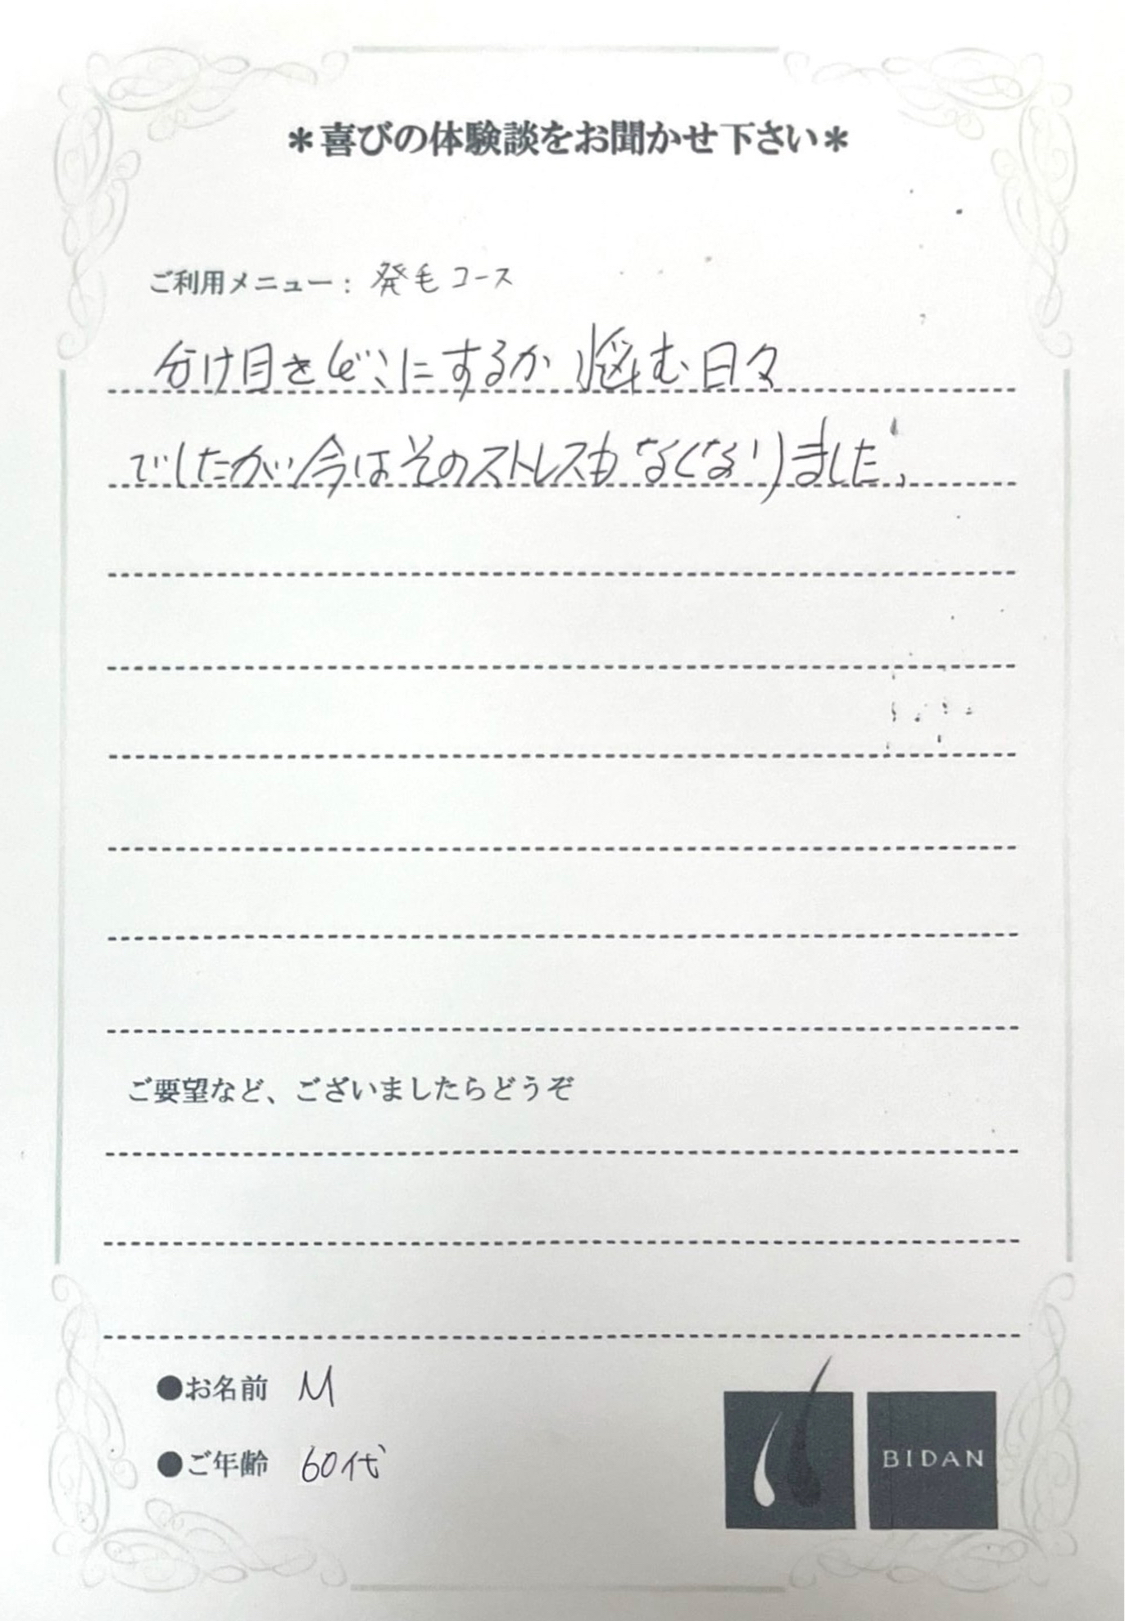 ＊喜びの体験談をお聞かせ下さい＊
ご利用メニュー：発毛コース
分け目をどこにするか 悩む日々
でしたが今はそのストレスもなくなりました。
ご要望など、ございましたらどうぞ
●お名前 M
●ご年齢 60代
BIDAN